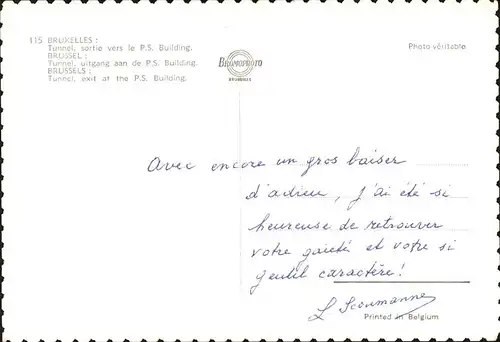 115 BRUXELLES :
Tunnel, sortie vers le P.S. Building.
BRUSSEL :
Tunnel, uitgang aan de P.S. Building.
BRUSSELS :
Tunnel, exit at the P.S. Building.
BROMOPHOTO
BRUXELLES
Photo véritable
Avec encore un gros baiser
d'adieu, j'ai été si
heureuse de retrouver
votre gaieté et votre si
gentil caractère!
L Scoumanne
Printed in Belgium